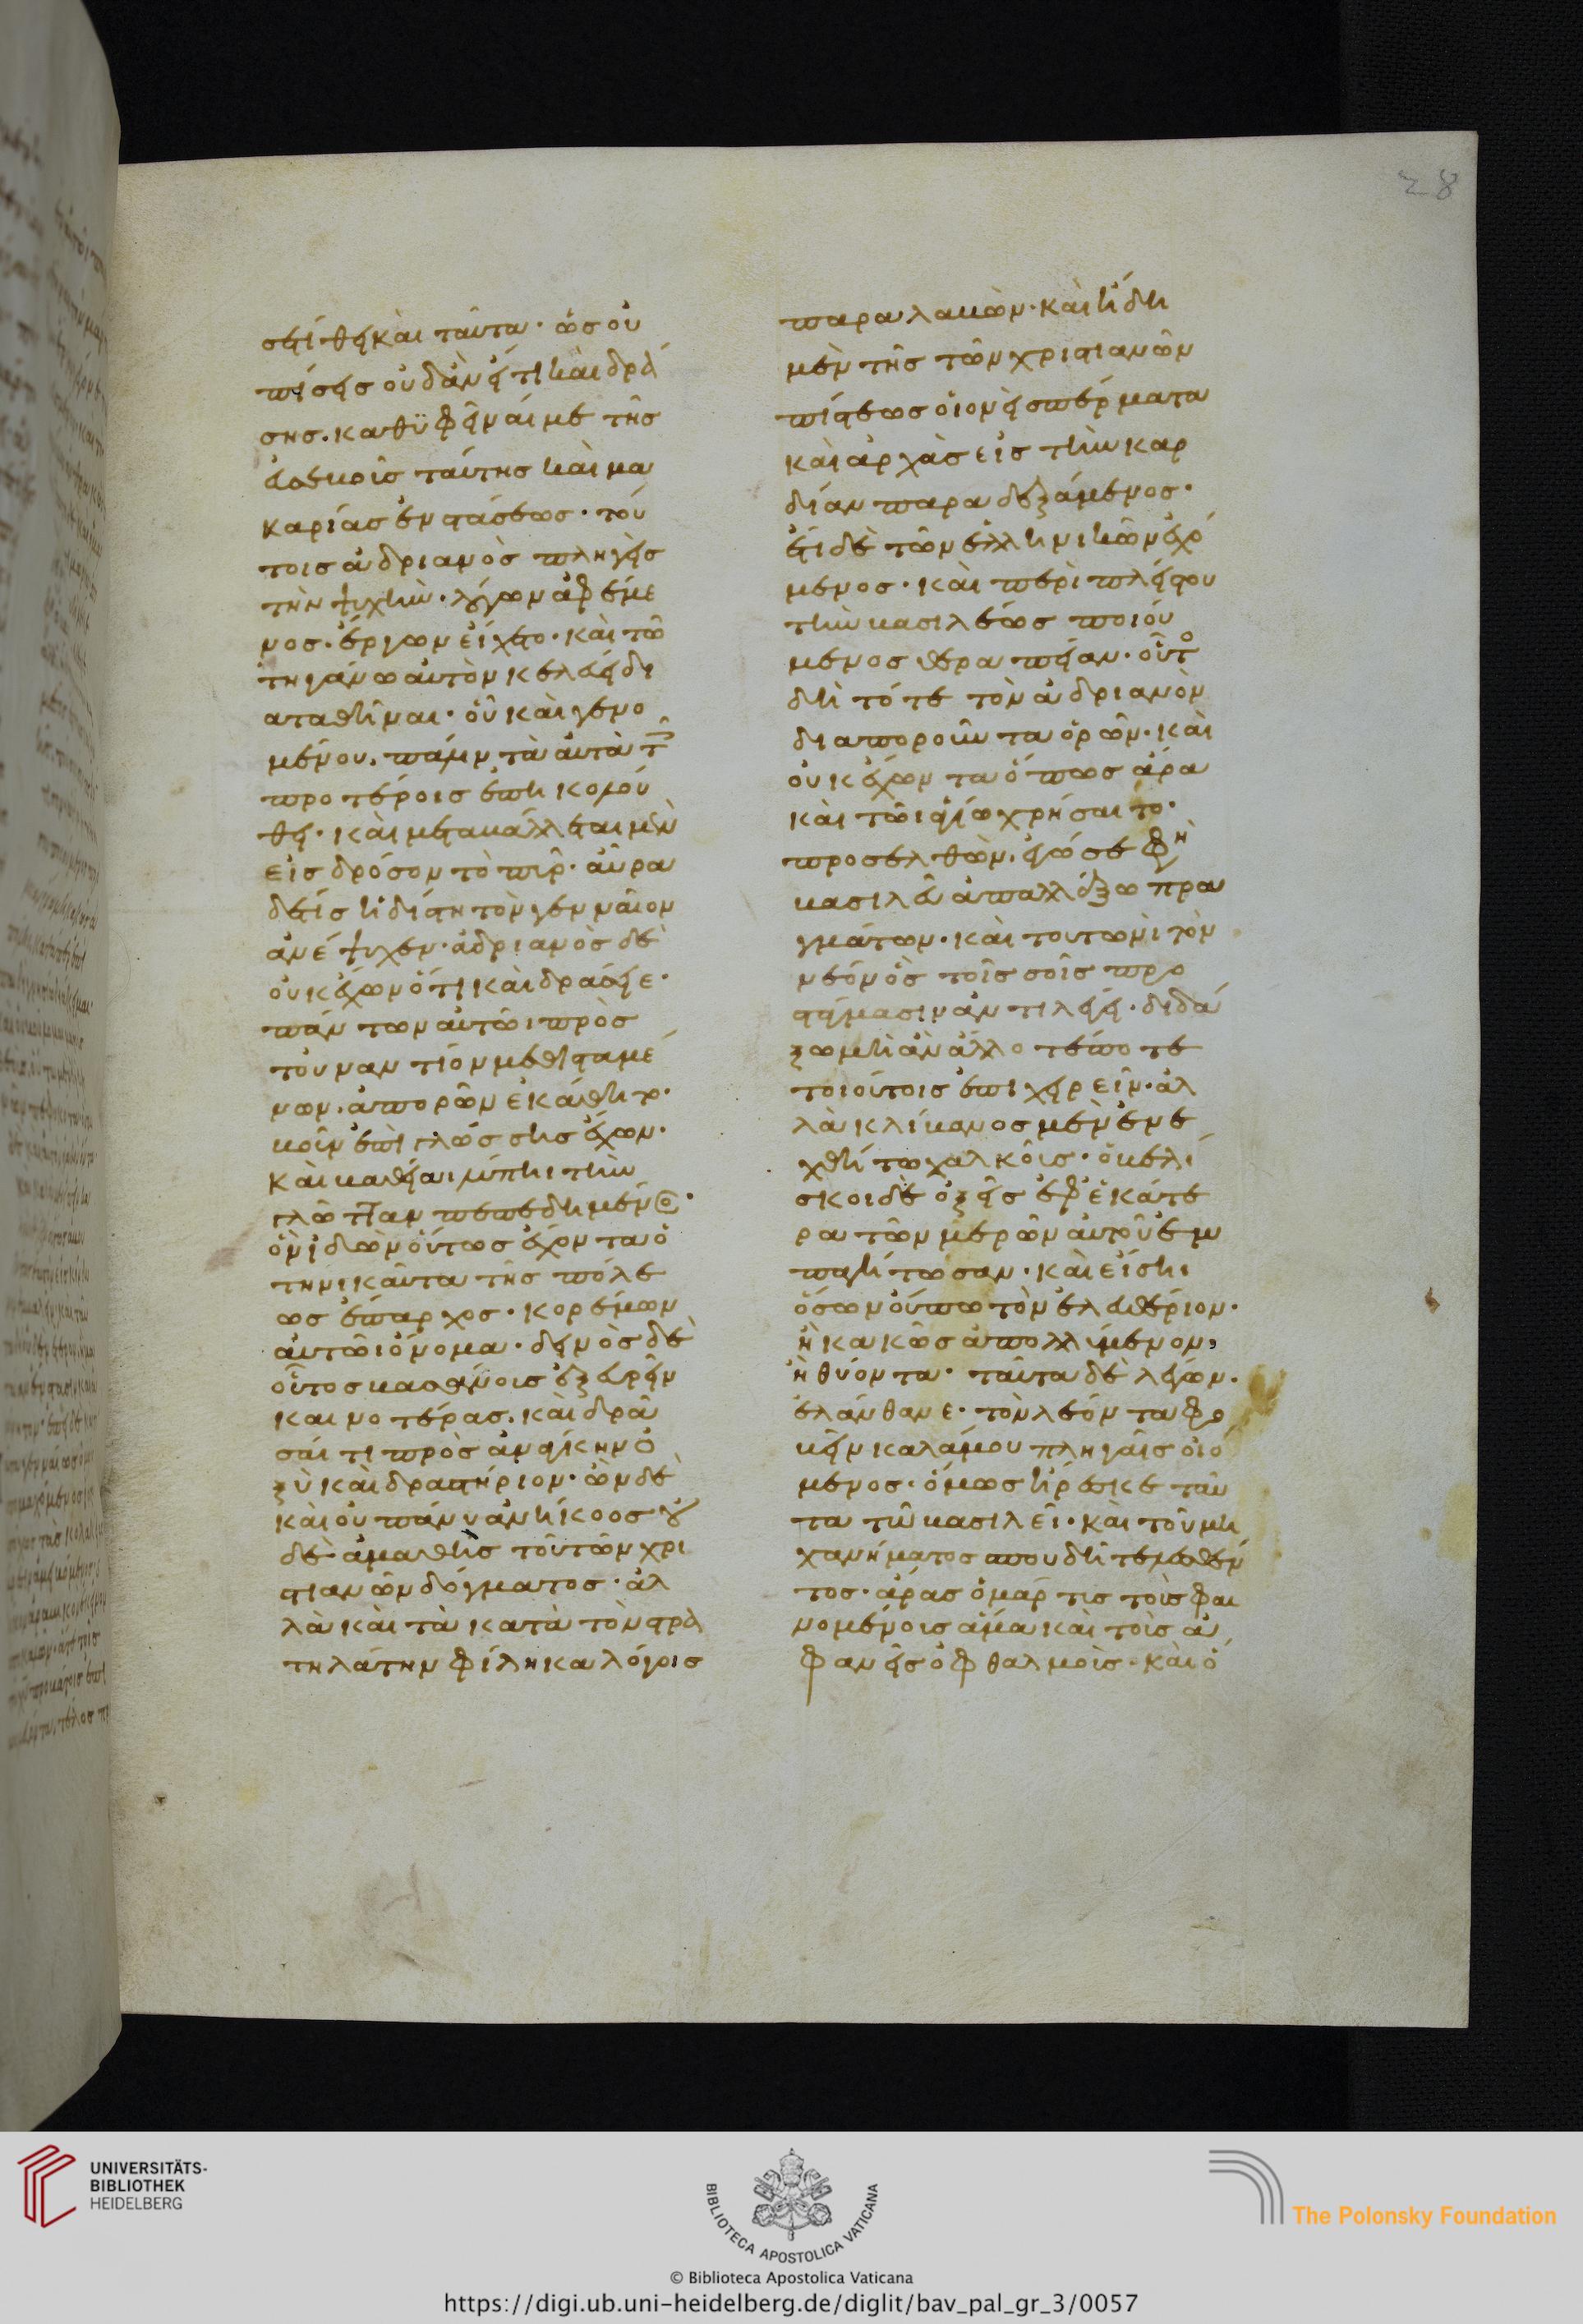 28
στίθει καὶ ταῦτα· ὡς οὐ
πείσεις οὐδὰν εἴ τι καὶ δρά
σης. καθυφεῖναί με τῆς
εὐσεβοῦς ταύτης καὶ μα
καρίας ἐνστάσεως· τού
τοις ἀδριανὸς πληγεὶς
τὴν ψυχὴν· λόγων ἀφέμε
νος· ἔργων εἴχετο· καὶ τῶ
τηγάνω αὐτὸν κελεύει δι
αταθῆναι· οὗ καὶ γενο
μένου. πάλιν τὰ αὐτὰ τοῖς
προτέροις ἐπηκολού
θει· καὶ μεταβάλλεται μὲν
εἰς δρόσον τὸ πῦρ· αὔρα
δέ τις ἡδίστη τὸν γενναῖον
ἀνέψυχεν· ἀδριανὸς δὲ
οὐκ ἔχων ὅτι καὶ δράσειε·
πάντων αὐτῶι πρὸς
τοὐναντίον μεθισταμέ
νων. ἀπορῶν ἐκάθητο·
βοῦν ἐπὶ γλώσσης ἔχων·
καὶ
γλῶτταν πεπεδημένος·
ὃν ἰδὼν οὕτως ἔχοντα ὁ
τηνικαῦτα τῆς πόλε
ως ἔπαρχος· κορέμων
αὐτῶι ὄνομα· δεινὸς δὲ
οὗτος βασάνοις ἐξευρεῖν
καινοτέρας. καὶ δρᾶ
σαί τι πρὸς ἀνθικηνο
ξὺ καὶ δραστήριον· ὢν δὲ
καὶ οὐ πάνυ ἀνήκοος οὐ
δὲ ἀμαθὴς τοῦ τῶν χρι
στιανῶν δόγματος· ἀλ
λὰ καὶ τὰ κατὰ τὸν στρα
τηλάτην φίληκα λόγοις
παραλαβών· καὶ ἤδη
μὲν τῆς τῶν χριστιανῶν
πίστεως οἱονεὶ σπέρματα
καὶ ἀρχὰς εἰς τὴν καρ
δίαν παραδεξάμενος·
ἔτι δὲ τῶν ἑλληνικῶν ἐχό
μενος· καὶ περὶ πλείστου
τὴν βασιλέως ποιού
μενος θεραπείαν· οὗτος
δὴ τότε τὸν ἀδριανὸν
διαποροῦντα ὁρῶν· καὶ
οὐκ ἔχοντα ὅπως ἄρα
καὶ τῶι ἁγίω χρήσαιτο·
προσελθών. ἐγώ σε φη
βασιλεῦ ἀπαλλάξω πρα
γμάτων· καὶ τουτωνὶ τὸν
μόνος τοῖς σοῖς προ
στάγμασιν ἀντιλέγει· διδά
ξω μὴ ἂν ἄλλο τε πώποτε
τοιούτοις ἐπιχειρεῖν· ἀλ
λὰ κλίβανος μὲν ἐνε
χθήτω χαλκοῦς· ὀβελί
σκοι δὲ ὀξεῖς ἐφ' ἑκάτε
ρα τῶν μερῶν αὐτοῦ ἐμ
παγήτωσαν· καὶ εἴση
ὅσον οὔπω τὸν ἐλευθέριον·
ἢ κακῶς ἀπολλύμενον,
ἢ θύοντα· ταῦτα δὲ λέγων·
ἐλάνθανε· τὸν λέοντα φο
βεῖν καλάμου πληγαῖς οἰό
μενος· ὅμως ἤρεσκε ταῦ
τα τῶ βασιλεῖ· καὶ τοῦ μη
χανήματος σπουδῆ τελεσθέν
τος· ἄρας ὁ μάρτις τοῖς φαι
νομένοις ἅμα καὶ τοῖς ἀ
φανέσ ὀφθαλμοῖς· καὶ ὁ
UNIVERSITÄTS-
BIBLIOTHEK
HEIDELBERG
BIBLIOTECA APOSTOLICA VATICANA
The Polonsky Foundation
© Biblioteca Apostolica Vaticana
https://digi.ub.uni-heidelberg.de/diglit/bav_pal_gr_3/0057